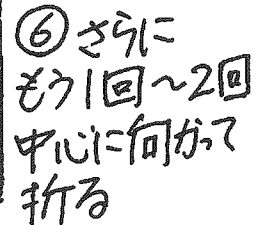 ⑥さらに
もう1回～2回
中心に向かって
折る